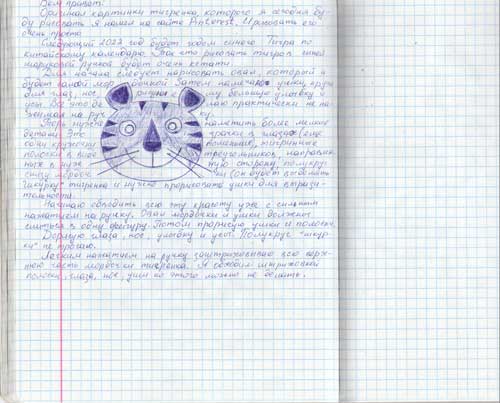 Всем привет!
Оригинал картинки тигренка, которого я сегодня бу-
ду рисовать я нашел на сайте Pinterest. Рисовать его
очень просто.
Следующий 2022 год будет годом синего Тигра по
китайскому календарю. Так что рисовать тигров синей
шариковой ручкой будет очень кстати.
Для начала следует нарисовать овал, который и
будет самой мордочкой. Затем намечаю ушки, круги
для глаз, нос
усы. Все это де лаю практически не на
жимая на руч ку.
Теперь нужно наметить более мелкие
детали. Это зрачки в глазах (еще
одни кружочки поменьше), тигриные
полоски в виде треугольников, направлен
ные в нужн ую сторону, полукруг
снизу мордоч ки (он будет выделять
"шкурку" тигренка и нужно прорисовать ушки для вырази-
тельности.
Начинаю обводить всю эту красоту уже с сильным
нажатием на ручку. Овал мордочки и ушки должны
слиться в одну фигуру. Потом прорисую ушки и полоски.
глаза, нос, улыбку и усы. Полукруг "шкур-
ку" не трогаю.
Легким нажатием на ручку заштриховываю всю верх-
нюю часть мордочки тигренка. А обводим штриховкой
полоски, глаза, нос, уши но этого можно не делать.